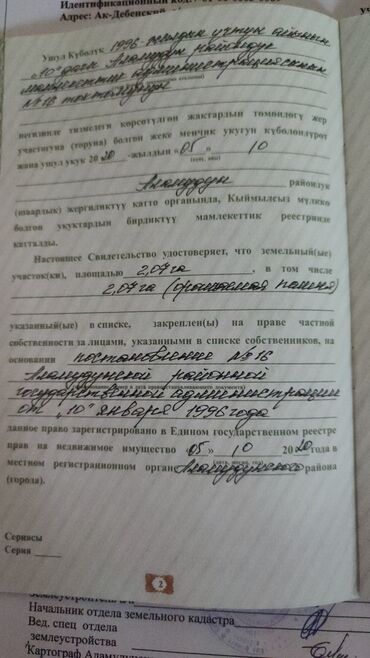 Идентификационный код:
Адрес: Ак-Дебенский
Ушул Күбөлүк 1996-жылдын үчтүн айынын
"10" дагы Аламүдүн райондук
мамлекеттик администрациясынын
№16 токтомунун
негизинде тизмеги көрсөтүлгөн жактардын төмөндөгү жер
участкуна (торуна) болгон жеке менчик укугун күбөлөндүрөт
жана ушул укук 2020 -жылдын «05 » 10
Аламүдүн райондук
(шаардык) жергиликтүү катто органында, Кыймылсыз мүлккө
болгон укуктардын бирдиктүү мамлекеттик реестринде
катталды.
Настоящее Свидетельство удостоверяет, что земельный(ые)
участок(ки), площадью 2,07 га , в том числе
2,07 га (орошаемая пашня)
указанный(ые) в списке, закреплен(ы) на праве частной
собственности за лицами, указанными в списке собственников, на
основании постановление №16
Аламудунской районной
государственной администрации
от "10" января 1996 года
данное право зарегистрировано в Едином государственном реестре
прав на недвижимое имущество «05 » 10 2020 года в
местном регистрационном орган Аламудунского района
(города).
Сериясы
Серия
2
Начальник отдела земельного кадастра
Вед. спец отдела
землеустройства
Картограф